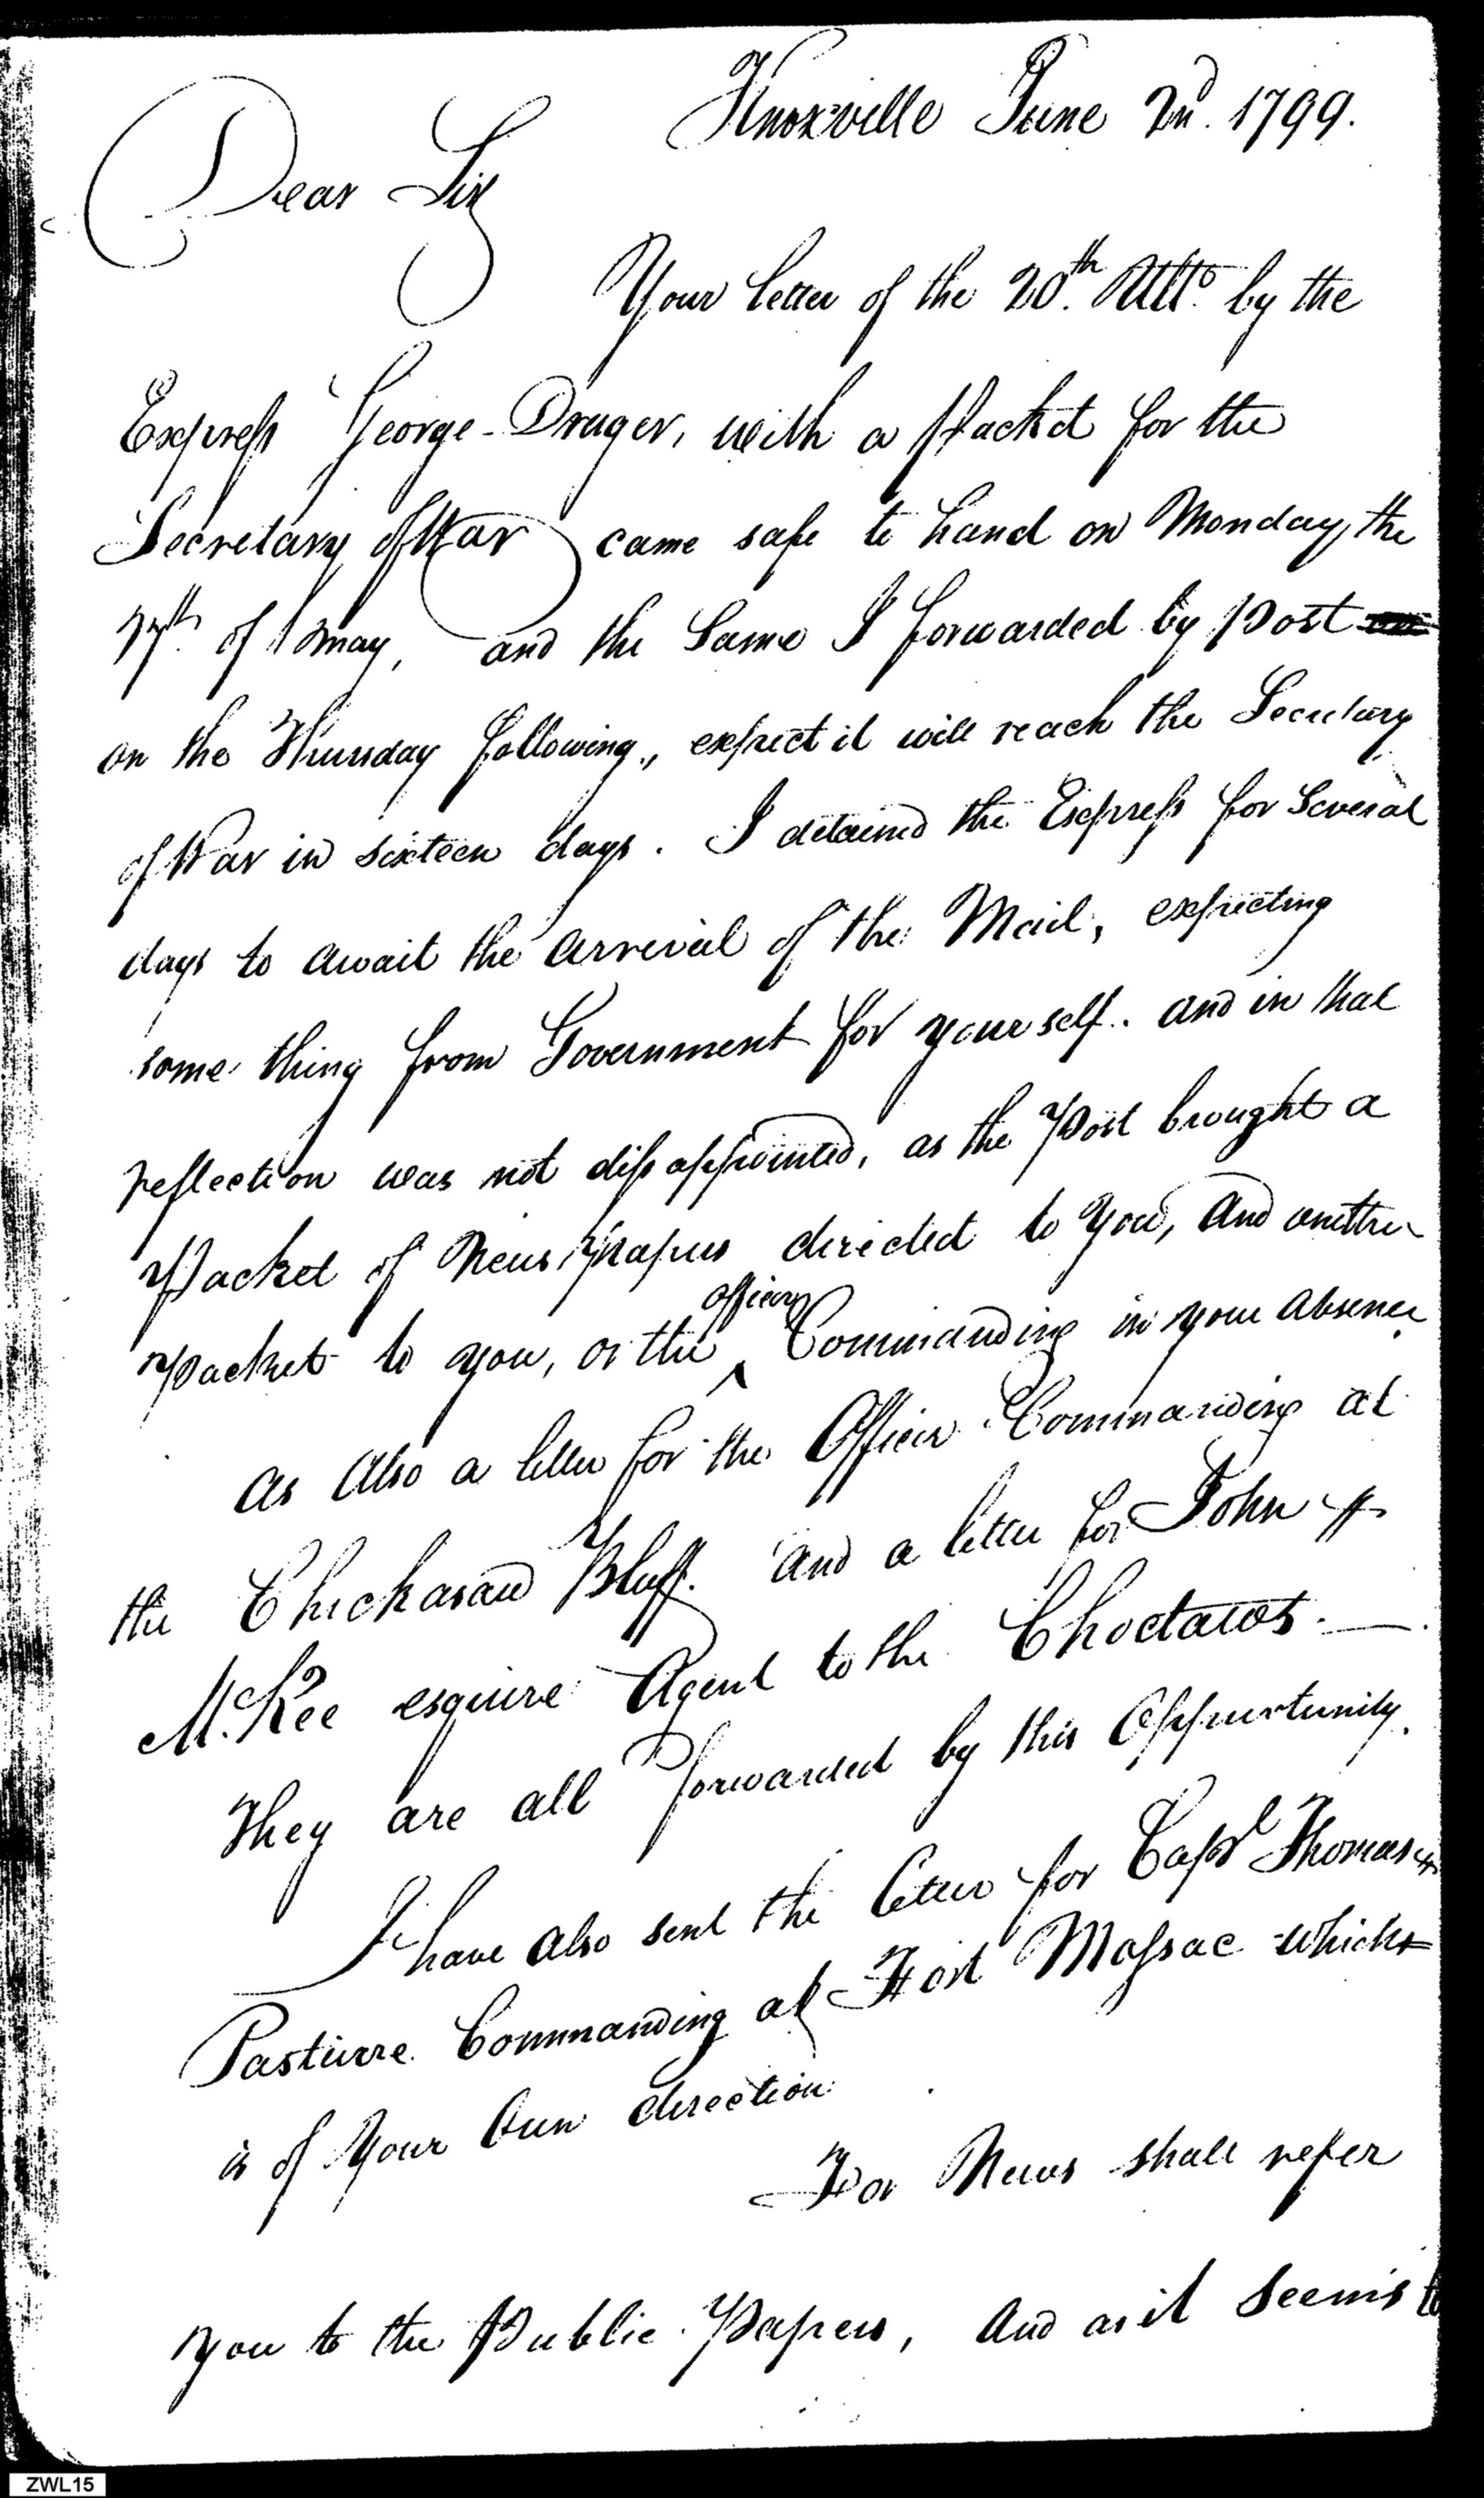 Knoxville June 2nd. 1799.
Dear Sir
Your letter of the 20th. Ulto. by the
Express George Druger, with a Packet for the
Secretary of War came safe to hand on Monday the
27th. of May, and the Same I forwarded by Post
on the Thursday following, expect it will reach the Secretary
of War in sixteen days. I detained the Express for Several
days to await the arrival of the Mail, expecting
some thing from Government for your self. and in that
reflection was not dissappointed, as the Post brought a
Packet of News Papers directed to You, and another
Packet to you, or the officer Commanding in your absence
as also a letter for the Officer Commanding at
the Chickasaw Bluff. and a letter for John
McKee esquire Agent to the Choctaws.
They are all forwarded by this Oppurtunity.
I have also sent the letter for Capt Thomas
Pasturre Commanding at Fort Massac which
is of Your Own direction
For News shall refer
you to the Public Papers, and as it Seems to
ZWL15